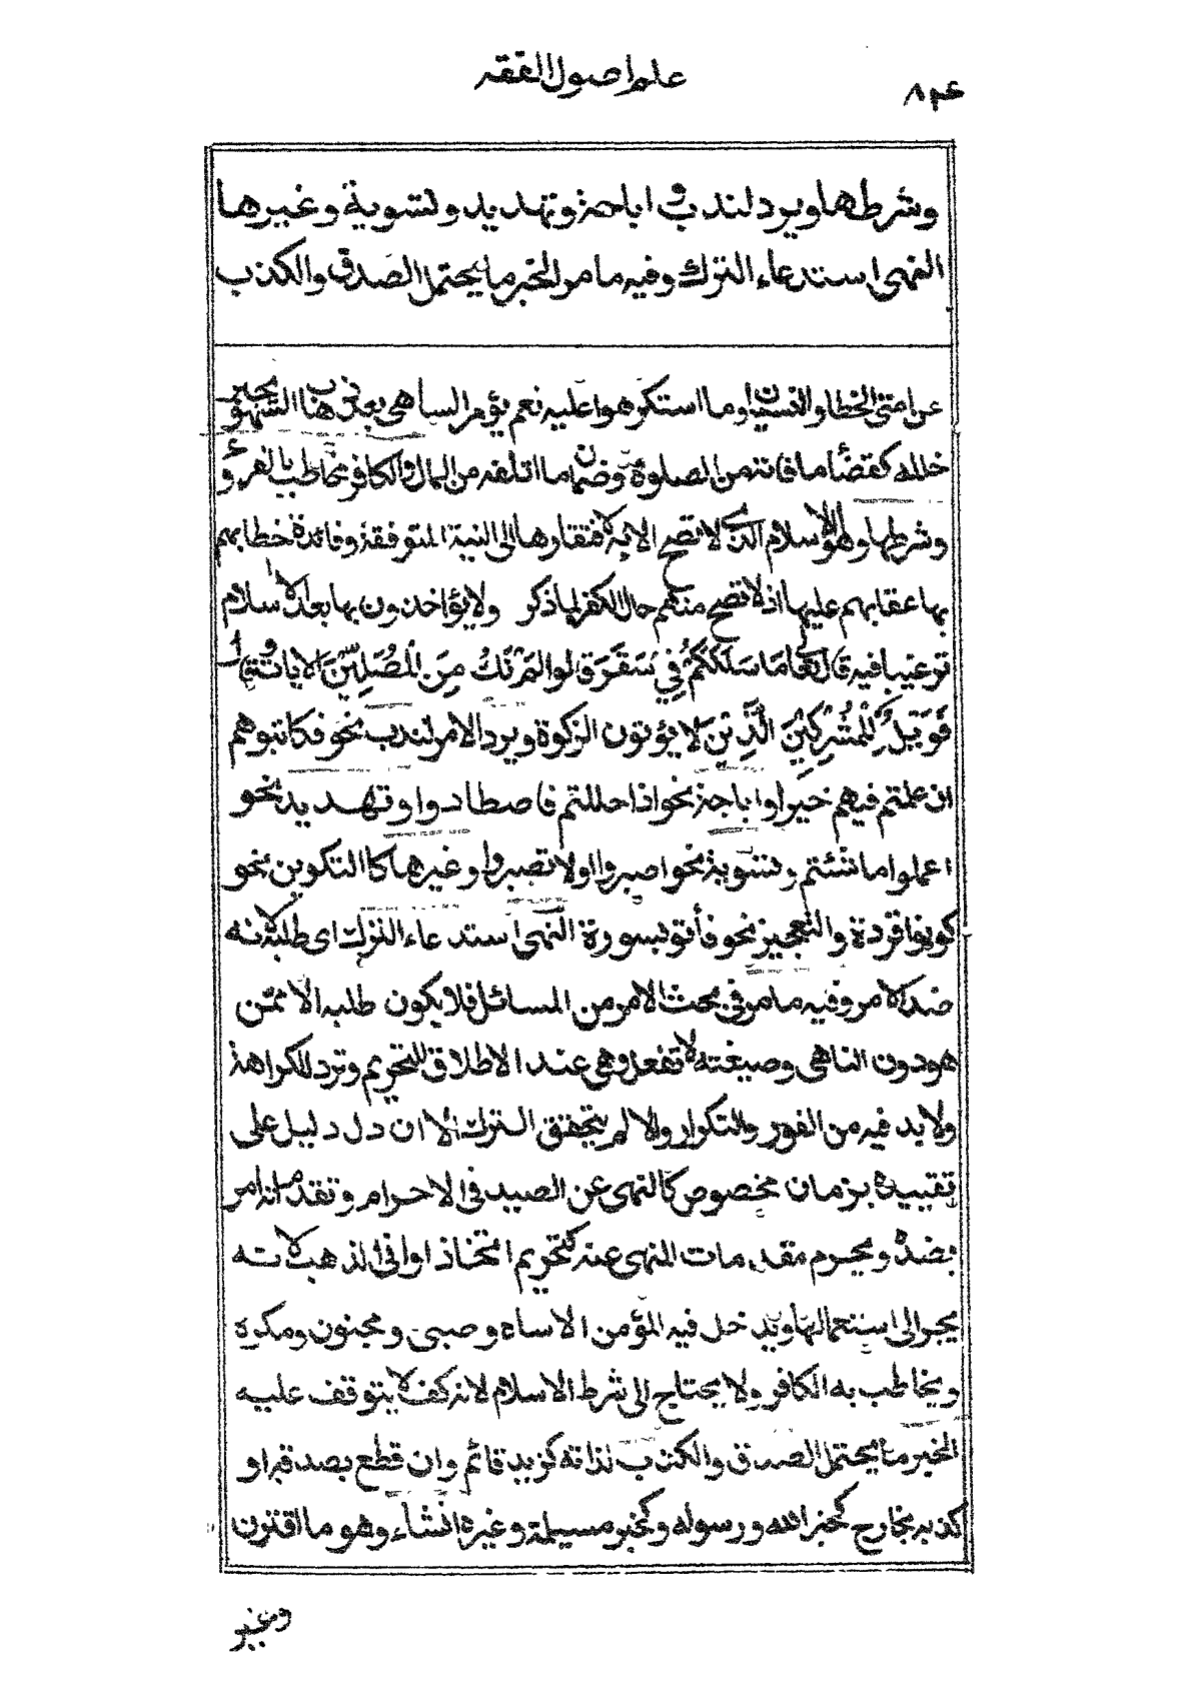 علم اصول الفقه
وشرطها ويرد لندب واباحة وتهديد وتسوية وغيرها
النهى استدعاء الترك وفيه ما مر الخبر ما يحتمل الصدق والكذب
عن امتى الخطا والنسيان وما استكرهوا عليه نعم يؤمر الساهى بعد ذهاب السهو بجبر
خلله كقضاء ما فاته من الصلوة وضمان ما اتلفه من المال والكافر مخاطب بالفروع
وشرطها وهو الاسلام الذى لا تصح الا به لافتقارها الى النية المتوقفة وفائدة خطابهم
بها عقابهم عليها اذ لا تصح منهم حال الكفر لما ذكر ولا يؤاخذون بها بعد الاسلام
ترغيبا فيه قال تعالى مَا سَلَكَكُمْ فِي سَقَرَ قالوا لَمْ نَكُ مِنَ الْمُصَلِّيْنَ الايات وقال
فَوَيْلٌ لِلْمُشْرِكِيْنَ الَّذِيْنَ لا يؤتون الزكوة ويرد الامر لندب نحو فكاتبوهم
ان علمتم فيهم خيرا واباحة نحو اذا حللتم فاصطادوا وتهديد نحو
اعملوا ما شئتم وتسوية نحو اصبروا اولا تصبروا وغيرها كالتكوين نحو
كونوا قردة والتعجيز نحو فأتوا بسورة النهى استدعاء الترك اى طلبه لانه
ضد الامر وفيه ما مر فى بحث الامر من المسائل فلا يكون طلبه الا ممن
هو دون الناهى وصيغته لا تفعل وهى عند الاطلاق للتحريم وترد للكراهة
ولا بد فيه من الفور والتكرار والا لم يتحقق الترك الا ان دل دليل على
تقييده بزمان مخصوص كالنهى عن الصيد فى الاحرام وتقدم انه امر
بضده ويحرم مقدمات المنهى عنه كتحريم اتخاذ اوانى الذهب لانه
يجر الى استعمالها ويدخل فيه المؤمن الا ساه وصبى ومجنون ومكره
ويخاطب به الكافر ولا يحتاج الى شرط الاسلام لانه كف لا يتوقف عليه
الخبر ما يحتمل الصدق والكذب لذاته كزيد قائم وان قطع بصدقه او
كذبه بخارج كخبر الله ورسوله وكخبر مسيلمة وغيره انشاء وهو ما اقترن